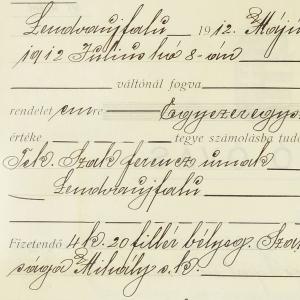 Lendvaujfalu 1912. Máju
1912 Julius hó 8-án
váltónál fogva
rendelet em re Egyszeregys
értéke tegye számolásba tudó
Tek. Szak ferencz urnak
Lendvaujfalu
Fizetendő 4 k. 20 fillér bélyeg. Szak
sága Mihály s. k.